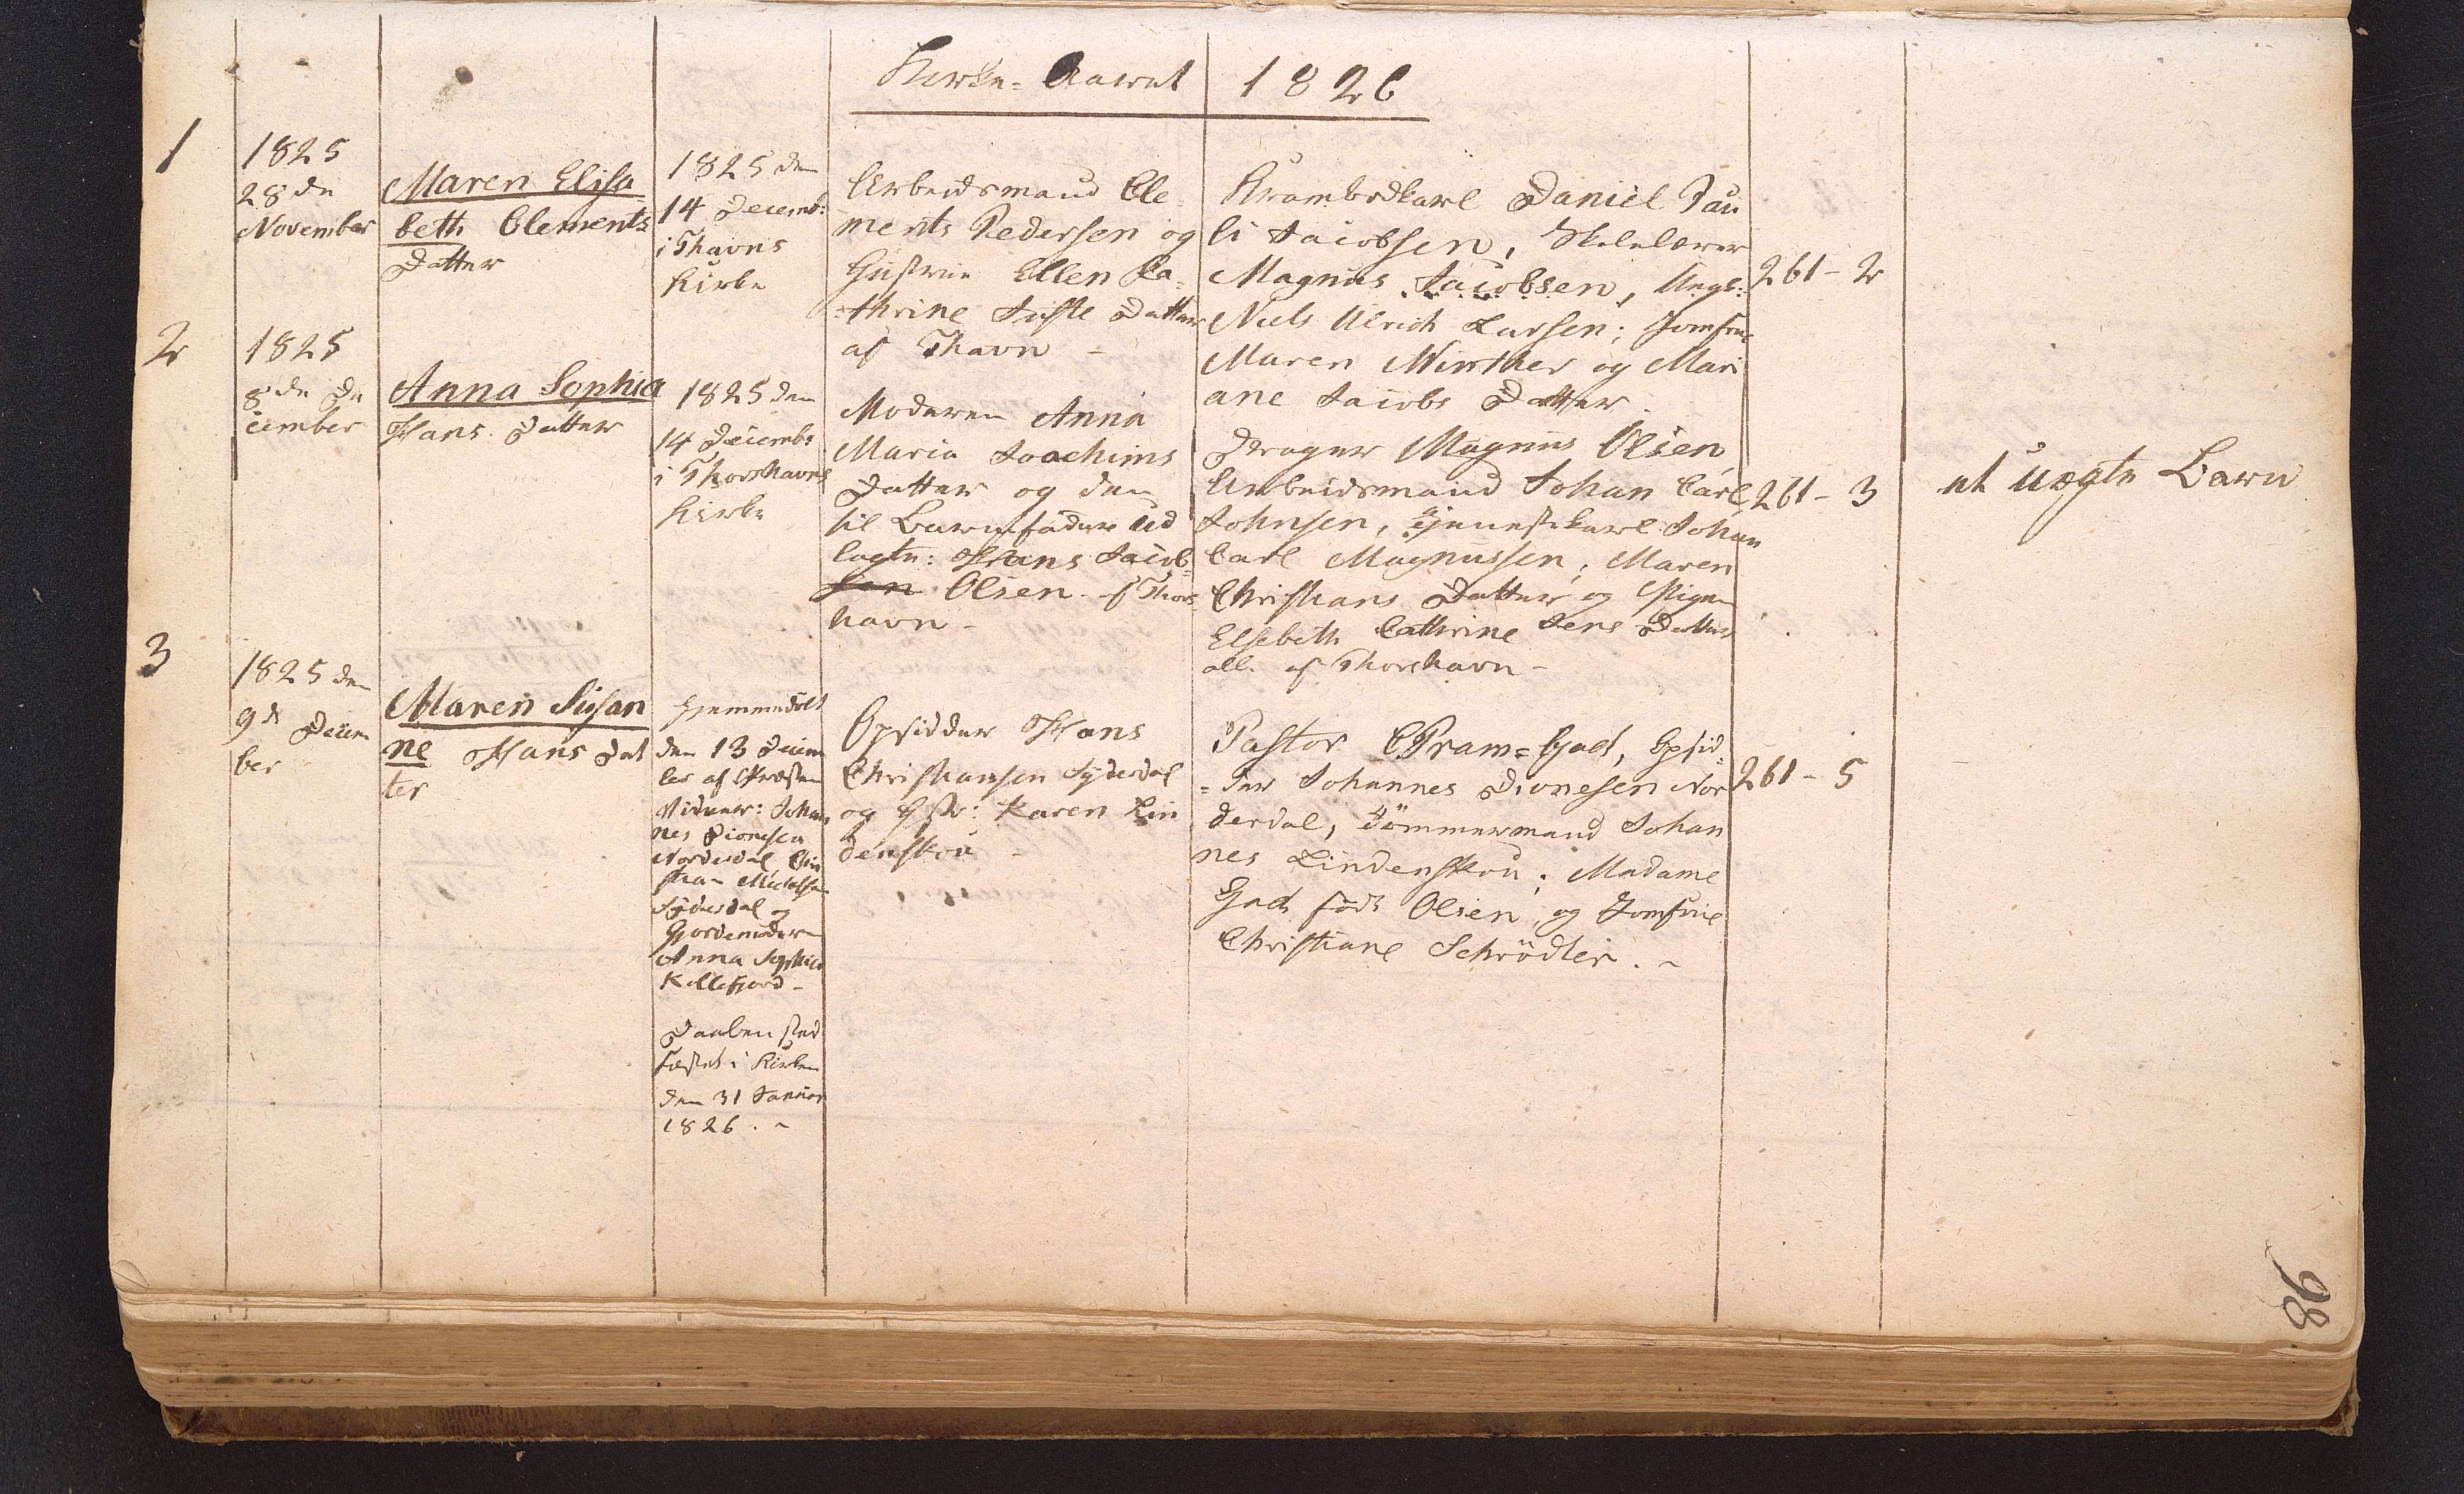 Kirke-Aaret 1826
1
1825
28de
November
Maren Elisa
beth Clements
Datter
1825 den
14 Decemb:
i Thavns
Kirke
Arbeidsmand Cle
ments Pedersen og
Hustrue Ellen Ka
thrine Juste Datter
af Thavn -
Krambodkarl Daniel Pau
li Jacobsen, Skolelærer
Magnus Jacobsen, Ungk:
Niels Ulrich Larsen; Jomfrue
Maren Winther og Mari
ane Jacobs Datter.
261-2
2
1825
8de De
cember
Anna Sophia
Hans Datter
1825 den
14 Decembr
i Thorshavns
Kirke
Moderen Anna
Maria Joachims
Datter og den
til Barnefader ud
lagte: Hans Jacob
sen Olsen af Thors
havn -
Drager Magnus Olsen
Arbeidsmand Johan Carl
Johnsen, Tjenestekarl Johan
Carl Magnussen; Maren
Christians Datter og Pigen
Elsebeth Cathrine Jens Datter
alle af Thorshavn -
261-3
et uægte Barn
3
1825 den
9de Decem
ber
Maren Susan
ne Hans Dat
ter
Hjemmedøbt
den 13 Decem
ber af Præsten
Vidner: Johan
nes Dionesen
Norderdal Chri
stian Michelsen
Syderdal og
Gjordemoderen
Anna Sophia
Kollefjord -
Daaben stad
fæstet i Kirken
den 31 Januar
1826. -
Opsidder Hans
Christiansen Syderdal
og Hstr: Karen Lin
denskou -
Pastor CPram=Gad, Opsid
=der Johannes Dionesen Nor
derdal, Tömmermand Johan
nes Lindenskou; Madame
Gad född Olsen, og Jomfrue
Christiane Schrödter. -
261-5
98